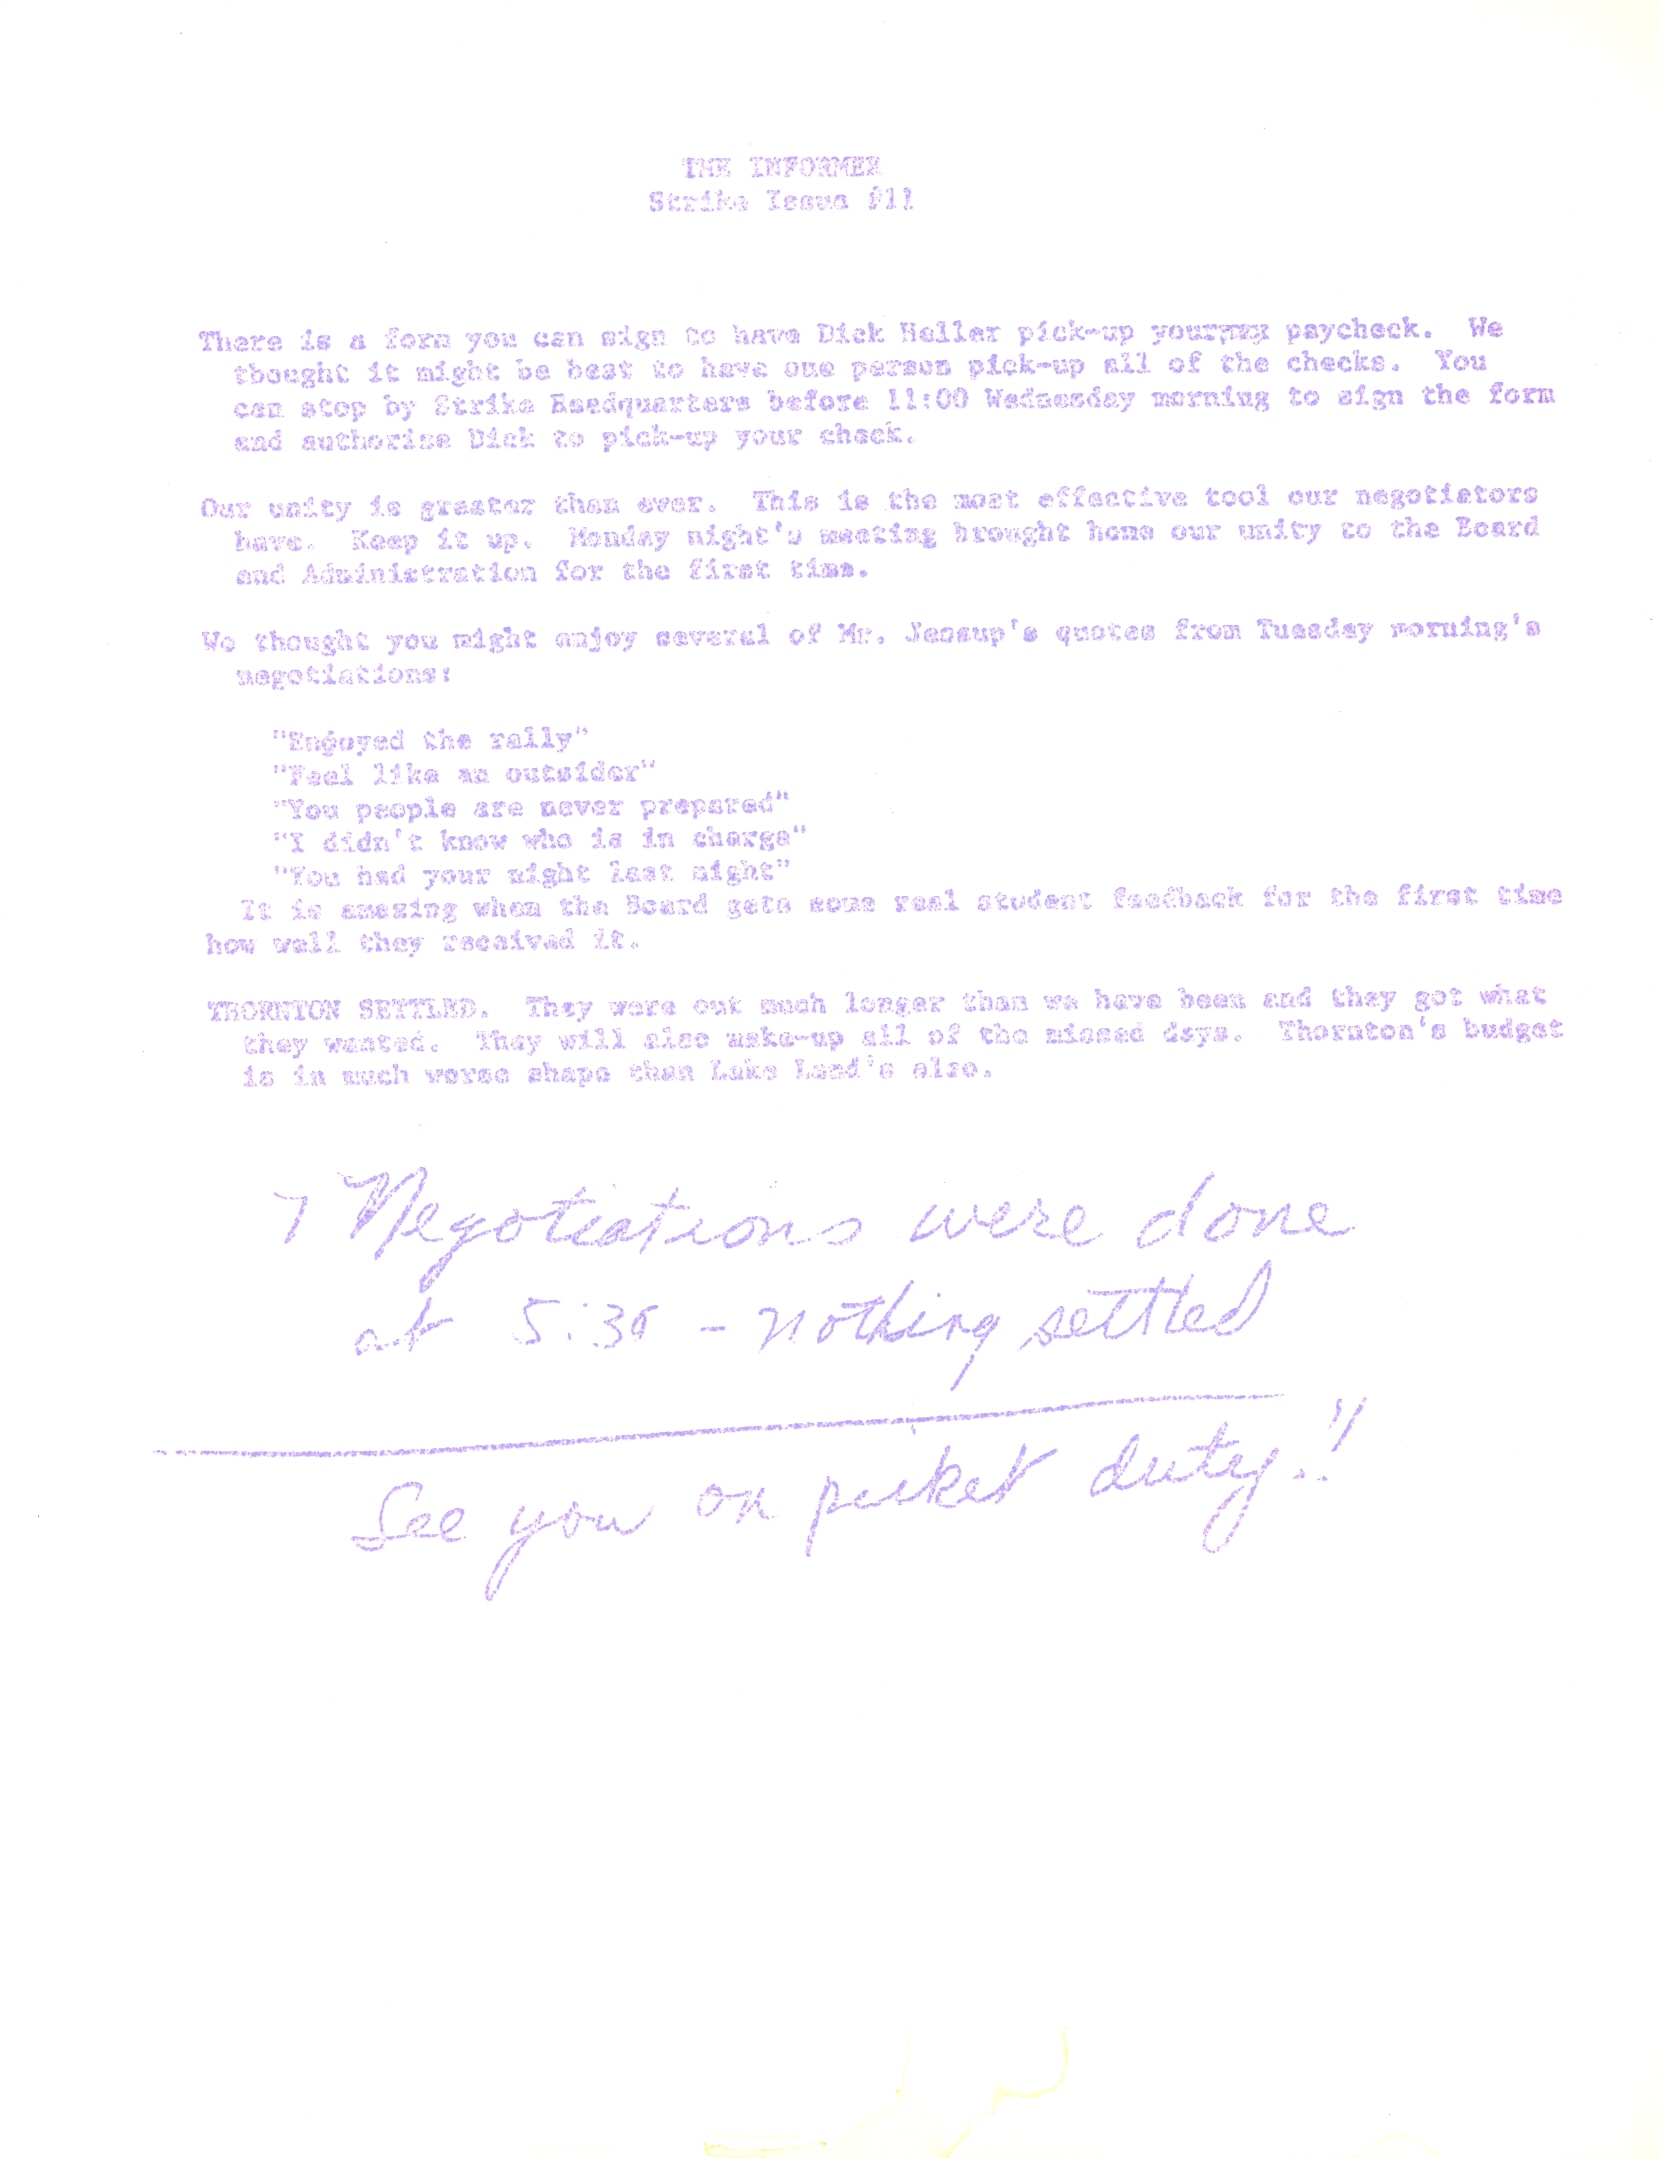 THE INFORMER
Strike Issue #11
There is a form you can sign to have Dick Heller pick-up your paycheck. We
thought it might be best to have one person pick-up all of the checks. You
can stop by Strike Headquarters before 11:00 Wednesday morning to sign the form
and authorize Dick to pick-up your check.
Our unity is greater than ever. This is the most effective tool our negotiators
have. Keep it up. Monday night's meeting brought home our unity to the Board
and Administration for the first time.
We thought you might enjoy several of Mr. Jessup's quotes from Tuesday morning's
negotiations:
"Enjoyed the rally"
"Feel like an outsider"
"You people are never prepared"
"I didn't know who is in charge"
"You had your night last night"
It is amazing when the Board gets some real student feedback for the first time
how well they received it.
THORNTON SETTLED. They were out much longer than we have been and they got what
they wanted. They will also make-up all of the missed days. Thornton's budget
is in much worse shape than Lake Land's also.
Negotiations were done
at 5:30 - nothing settled
See you on picket duty!!